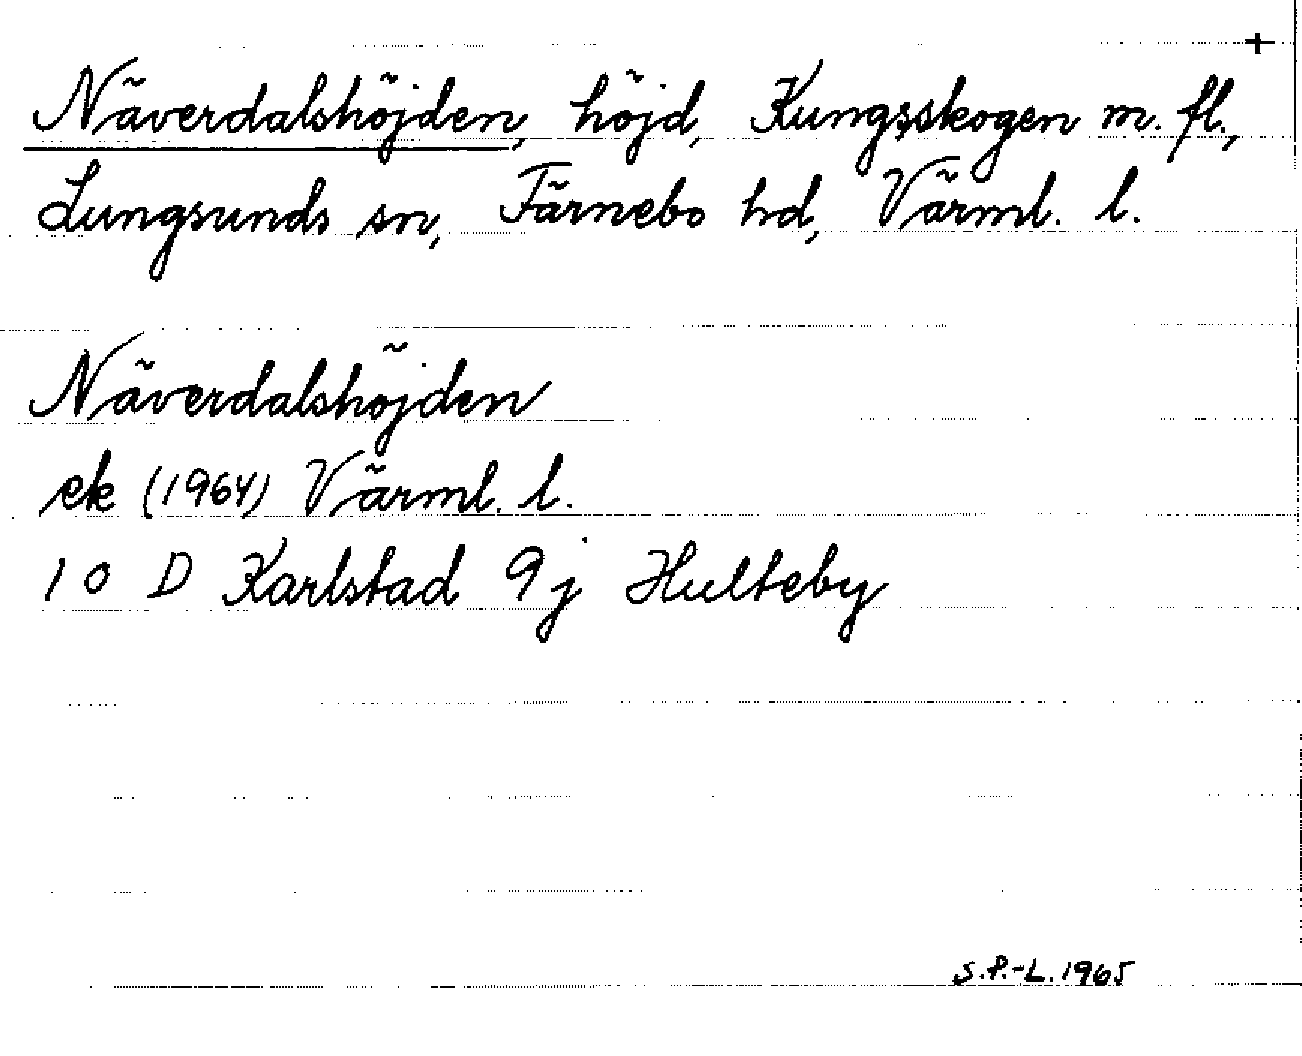 +
Näverdalshöjden, höjd, Kungsskogen m. fl.,
Lungsunds sn, Färnebo hd, Värml. l.
Näverdalshöjden
ek (1964) Värml. l.
10 D Karlstad 9j Hulteby
S.P.-L. 1965